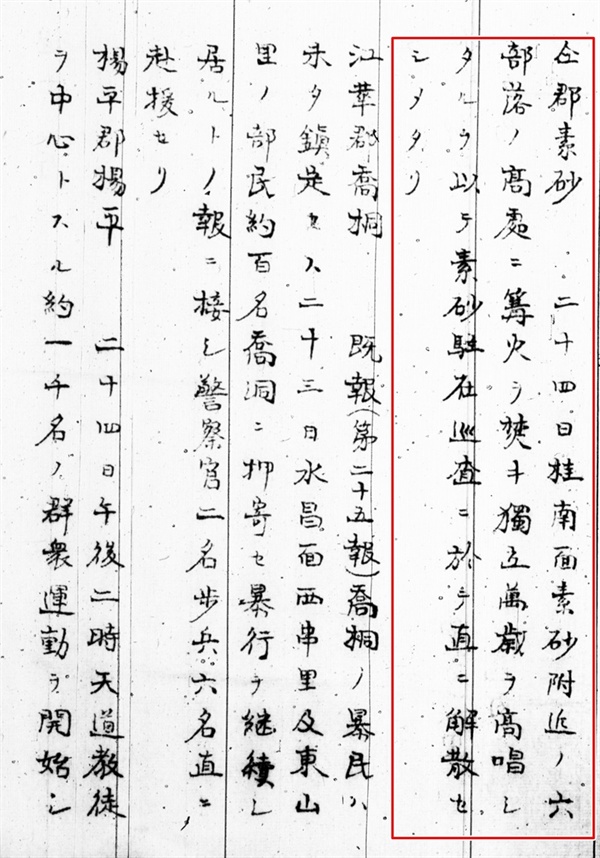 仝郡素砂　二十四日桂南面素砂附近ノ六
部落ノ高處ニ篝火ヲ狹キ獨立萬歲ヲ高唱シ
タルヲ以テ素砂駐在巡査ニ於テ直ニ解散セ
シメタリ
江華郡喬桐　既報(第二十五報)喬桐ノ暴民ハ
未タ鎭定セス二十三日水昌面西串里及東山
里ノ部民約百名喬洞ニ押寄セ暴行ヲ継續シ
居ルトノ報ニ接シ警察官二名步兵六名直ニ
赴援セリ
楊平郡楊平　二十四日午後二時天道敎徒
ヲ中心トスル約一千名ノ群衆運動ヲ開始シ